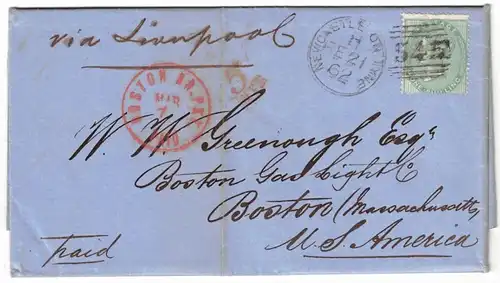 via Liverpool
NEWCASTLE ON TYNE
21
62
545
BOSTON BR. PKT.
MAR
7
5
W. W. Greenough Esqr
Boston Gas Light Co
Boston / Massachusetts
U. S. America
paid